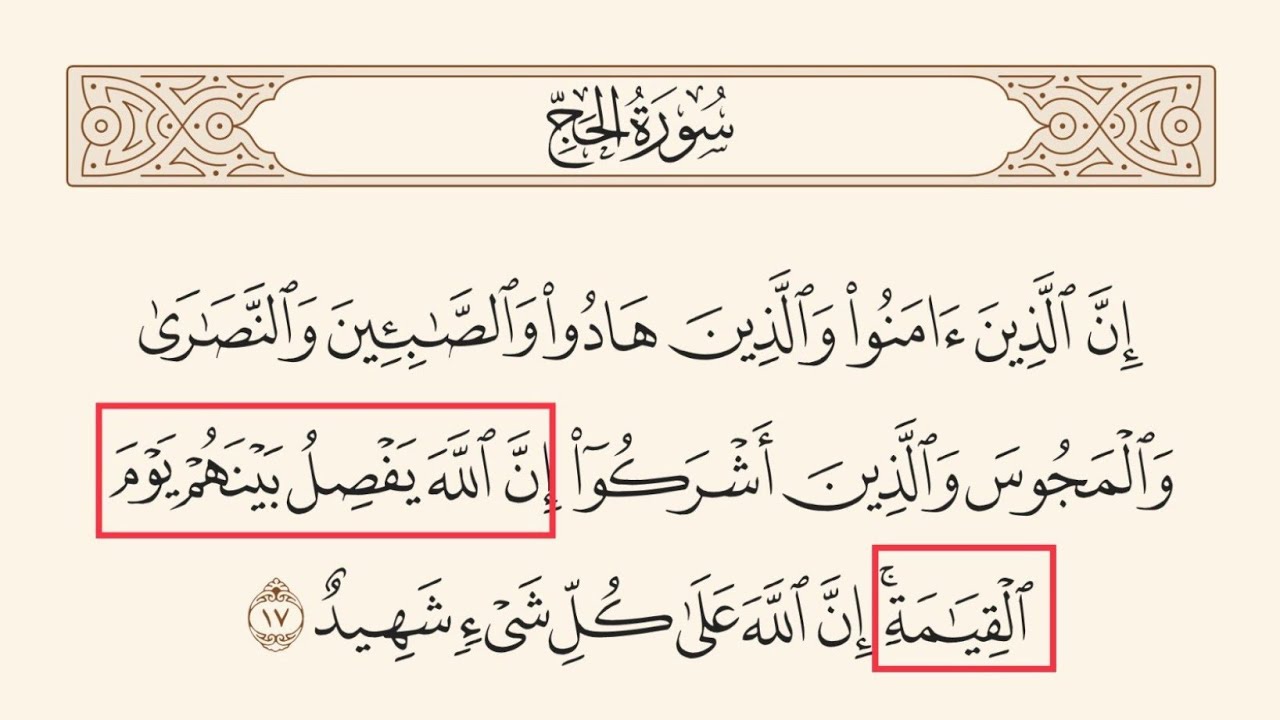 سُورَةُ الحَجِّ
إِنَّ ٱلَّذِينَ ءَامَنُوا۟ وَٱلَّذِينَ هَادُوا۟ وَٱلصَّٰبِـِٔينَ وَٱلنَّصَٰرَىٰ
وَٱلْمَجُوسَ وَٱلَّذِينَ أَشْرَكُوٓا۟ إِنَّ ٱللَّهَ يَفْصِلُ بَيْنَهُمْ يَوْمَ
ٱلْقِيَٰمَةِ ۚ إِنَّ ٱللَّهَ عَلَىٰ كُلِّ شَىْءٍ شَهِيدٌ ١٧